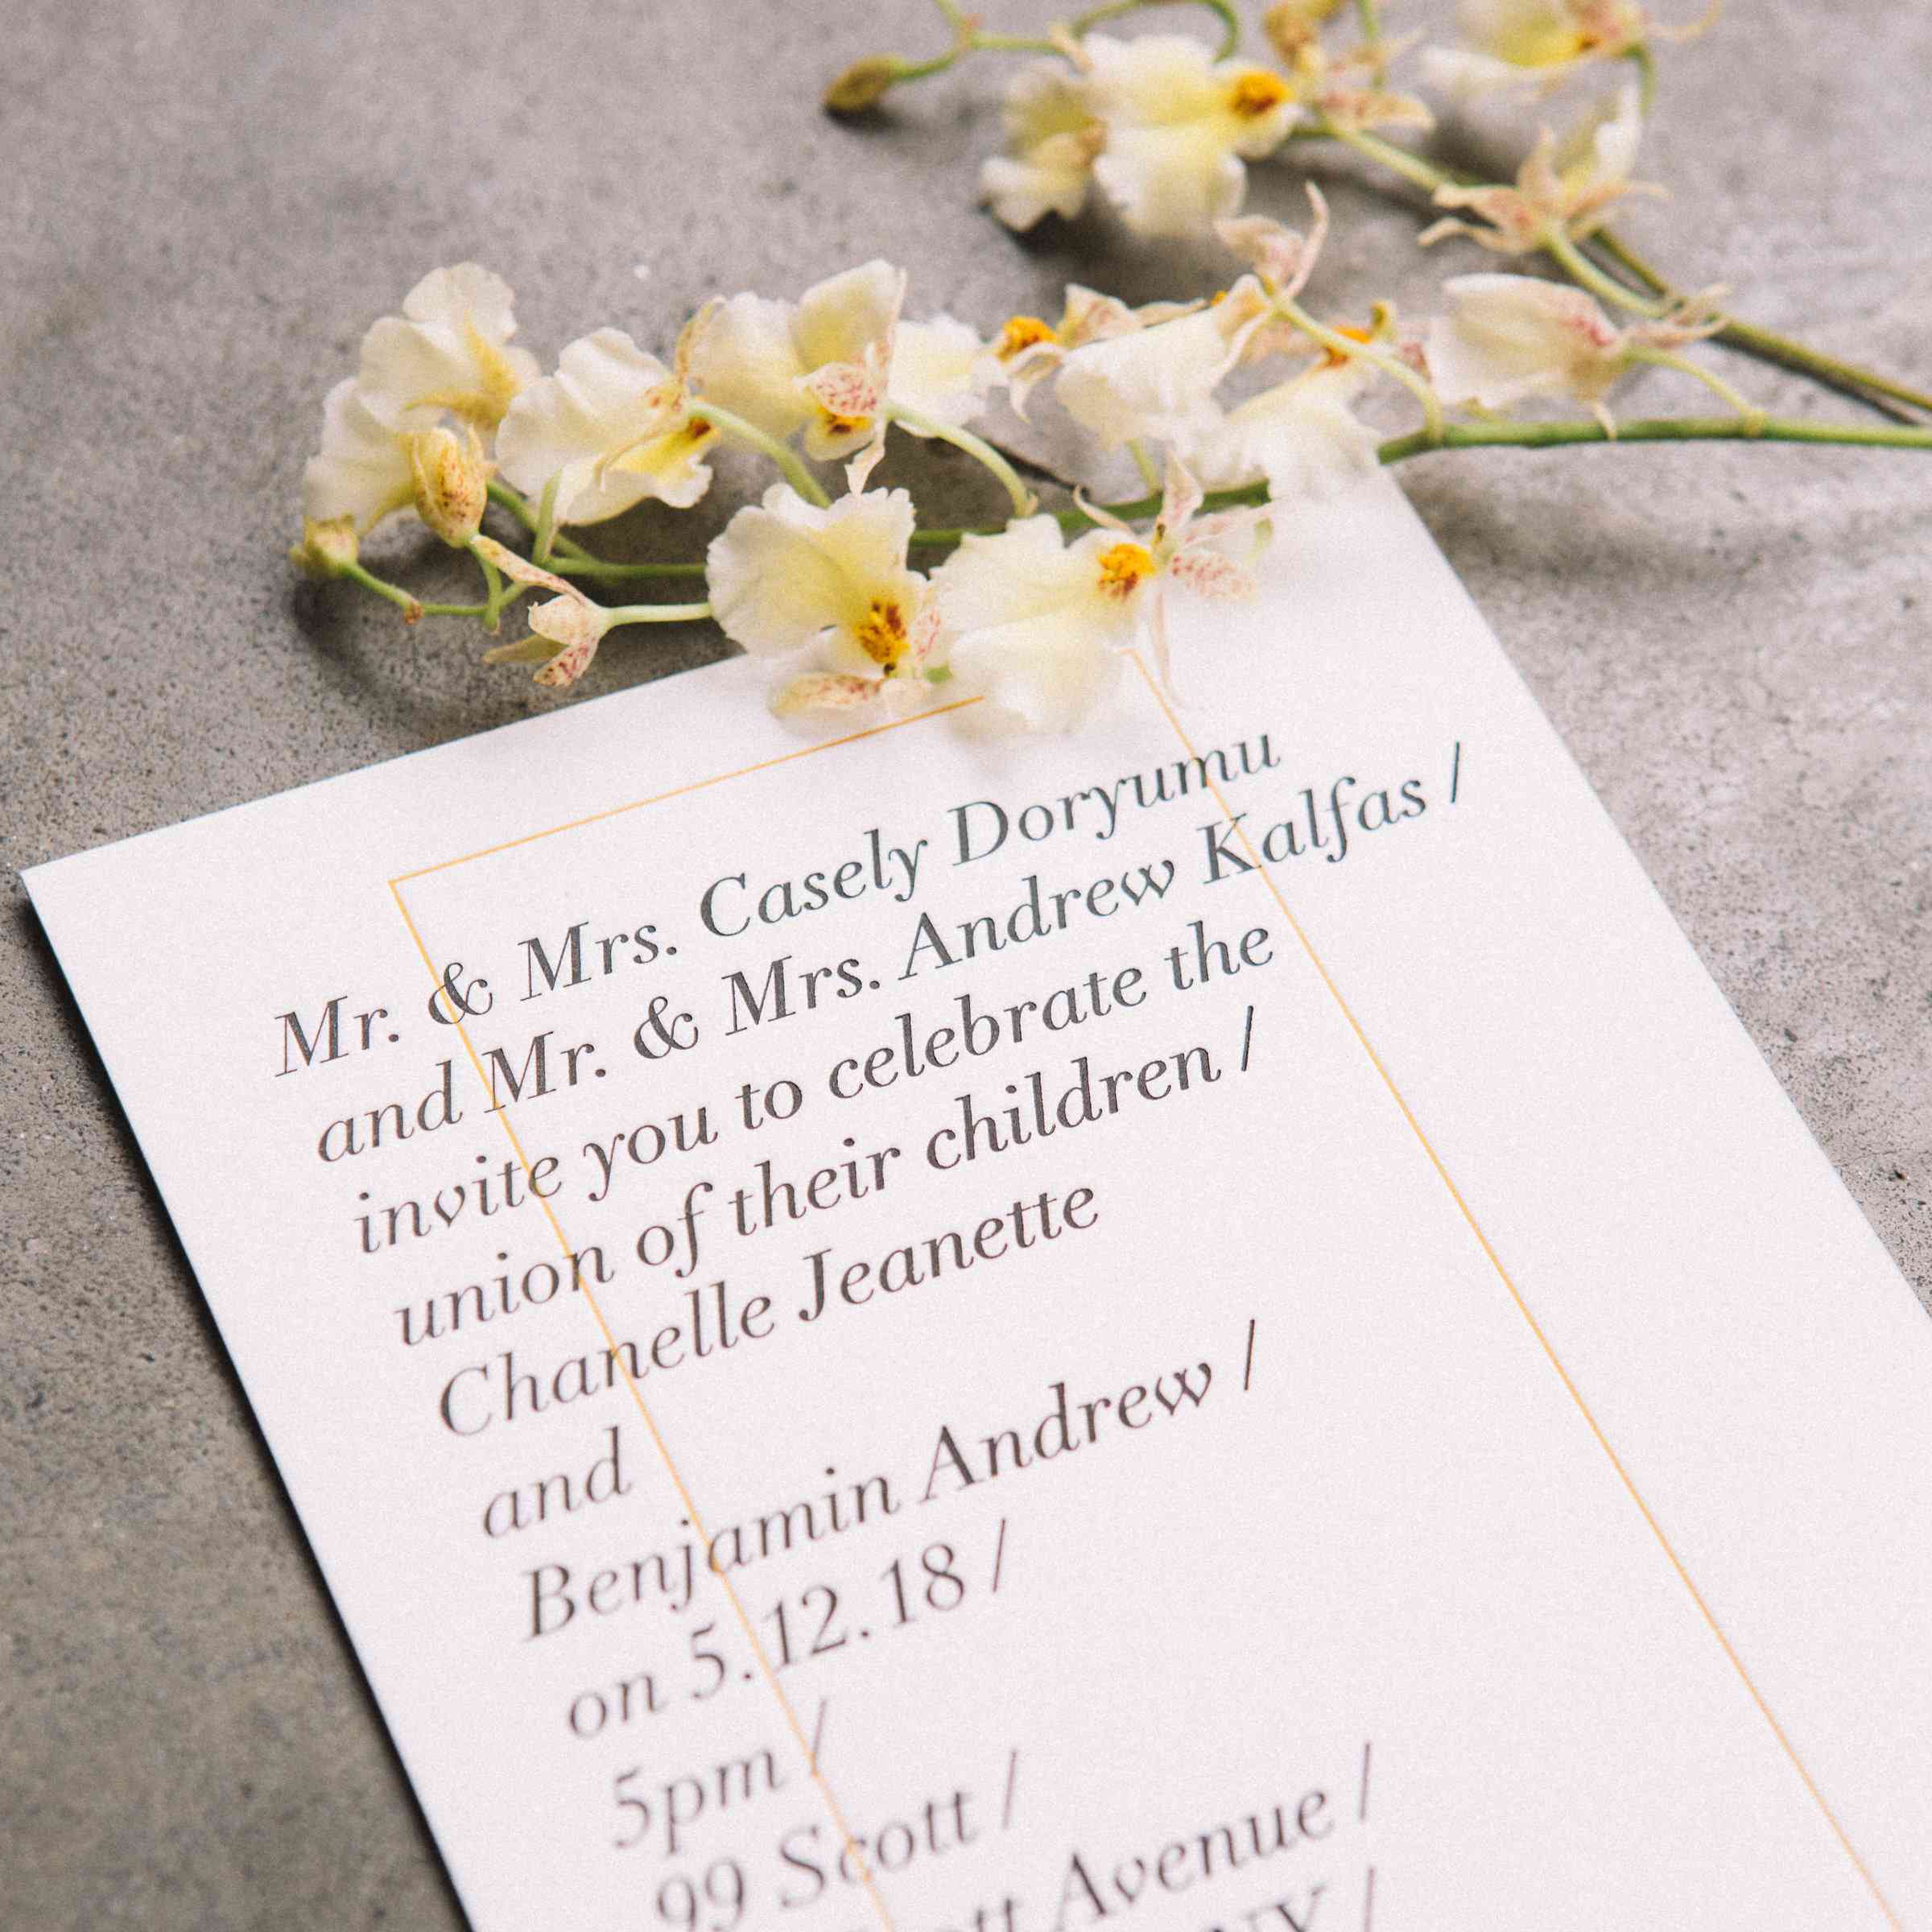 Mr. & Mrs. Casely Doryumu
and Mr. & Mrs. Andrew Kalfas /
invite you to celebrate the
union of their children /
Chanelle Jeanette
and
Benjamin Andrew /
on 5.12.18 /
5pm /
99 Scott /
Avenue /
NY /